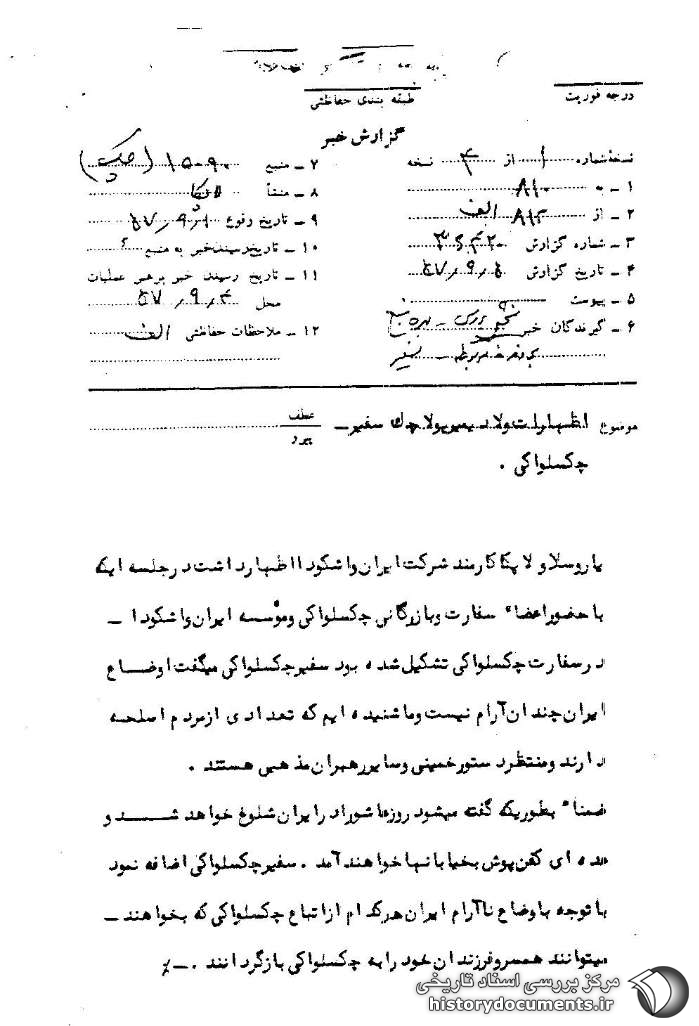 درجه فوریت
طبقه بندی حفاظتی
گزارش خبر
نسخه شماره ۱ از ۳ نسخه
۱ - به ۸۱۰
۲ - از ۸۱۲ الف
۳ - شماره گزارش
۴ - تاریخ گزارش
۵ - پیوست
۶ - گیرندگان خبر
۷ - منبع ۱۵۰۹۰
۸ - منشأ
۹ - تاریخ وقوع
۱۰ - تاریخ رسیدن خبر به منبع
۱۱ - تاریخ رسیدن خبر برهبر عملیات
محل ۵۷٫۹٫۴
۱۲ - ملاحظات حفاظتی الف
موضوع اظهارات ولادیمیر پولاچک سفیر - عطف
پیرو
چکسلواکی .
یاروسلاو لاپکا کارمند شرکت ایران واشکودا اظهار داشت در جلسه ایکه
با حضور اعضاء سفارت و بازرگانی چکسلواکی و مؤسسه ایران واشکودا -
در سفارت چکسلواکی تشکیل شده بود سفیر چکسلواکی میگفت اوضاع
ایران چندان آرام نیست و ما شنیده ایم که تعدادی از مردم اسلحه
دارند و منتظر دستور خمینی و سایر رهبران مذهبی هستند .
ضمناً بطوریکه گفته میشود روز عاشورا در ایران شلوغ خواهد شد و
عده ای کفن پوش بخیابانها خواهند آمد . سفیر چکسلواکی اضافه نمود
با توجه باوضاع ناآرام ایران هرکدام از اتباع چکسلواکی که بخواهند -
میتوانند همسر و فرزندان خود را به چکسلواکی بازگردانند .-٪
مرکز بررسی اسناد تاریخی
historydocuments.ir